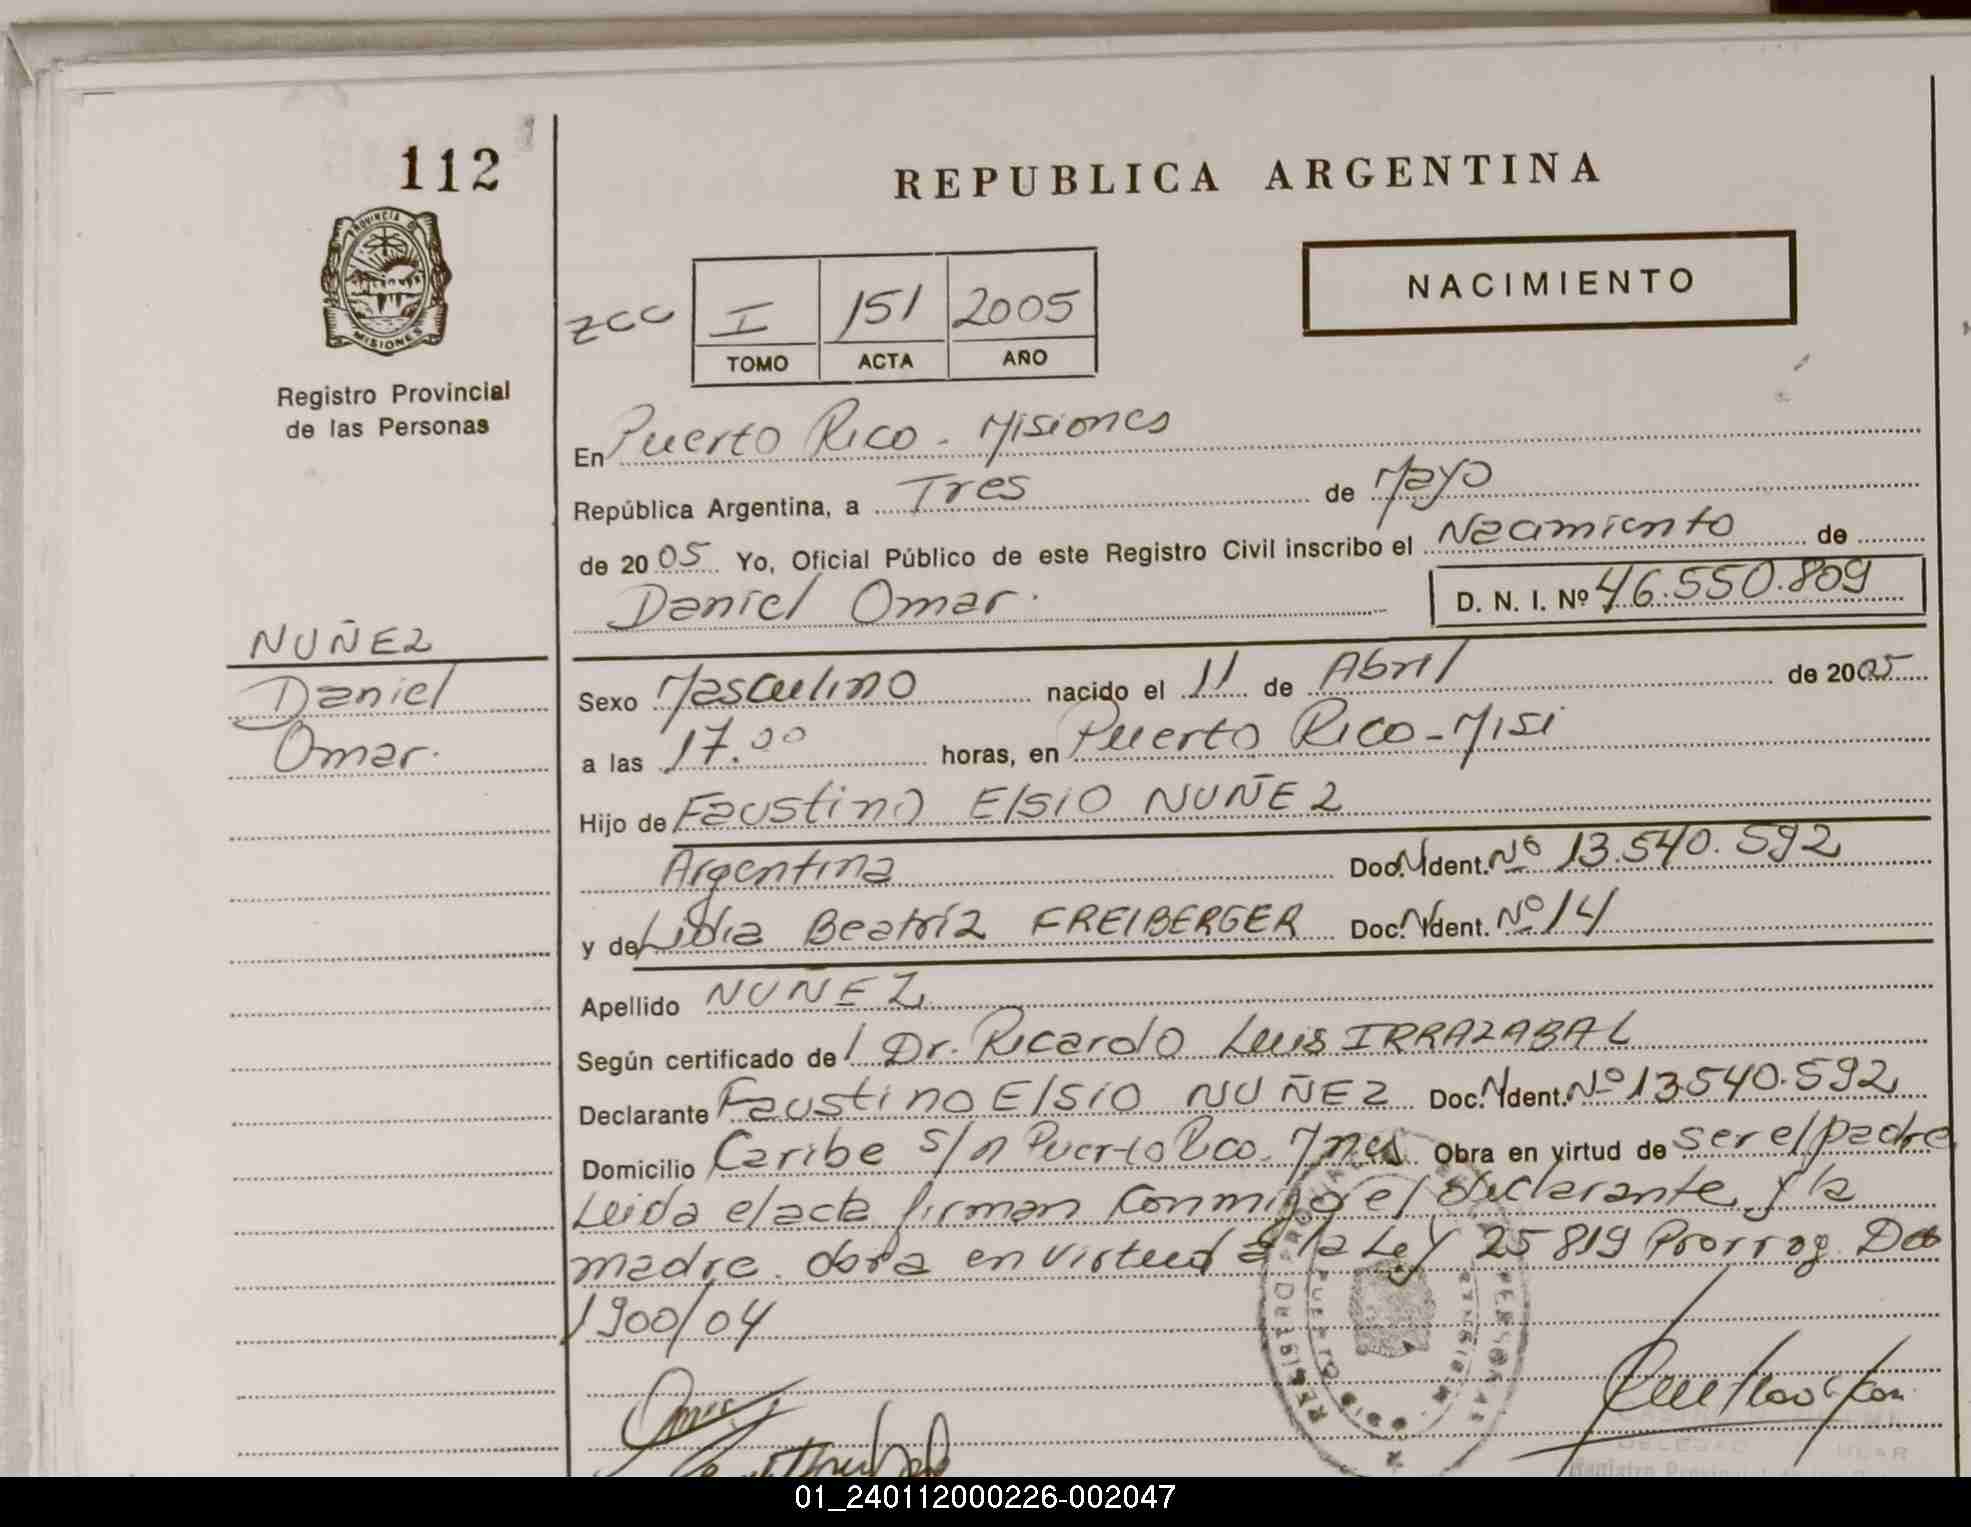 112
REPUBLICA ARGENTINA
PROVINCIA D
MISIONES
NACIMIENTO
zcc I 151 2005
TOMO ACTA AÑO
Registro Provincial
de las Personas
En Puerto Rico - Misiones
República Argentina, a Tres de Mayo
de 2005 Yo, Oficial Público de este Registro Civil inscribo el Nacimiento de
Daniel Omar. D. N. I. Nº 46.550.809
NUÑEZ
Daniel
Omar.
Sexo Masculino nacido el 11 de Abril de 2005
a las 17.00 horas, en Puerto Rico - Misi
Hijo de Faustino Elsio NUÑEZ
Argentina Doc. Ident. Nº 13.540.592
y de Lidia Beatríz FREIBERGER Doc. Ident. Nº 14
Apellido NUÑEZ
Según certificado de Dr. Ricardo Luis IRRAZABAL
Declarante Faustino Elsio NUÑEZ Doc. Ident. Nº 13.540.592
Domicilio Caribe s/n Puerto Rico. Mnes Obra en virtud de ser el padre
Leida el acta firman conmigo el declarante y la
madre. obra en virtud a la Ley 25819 Prorrog. Dto
1900/04
01_240112000226-002047